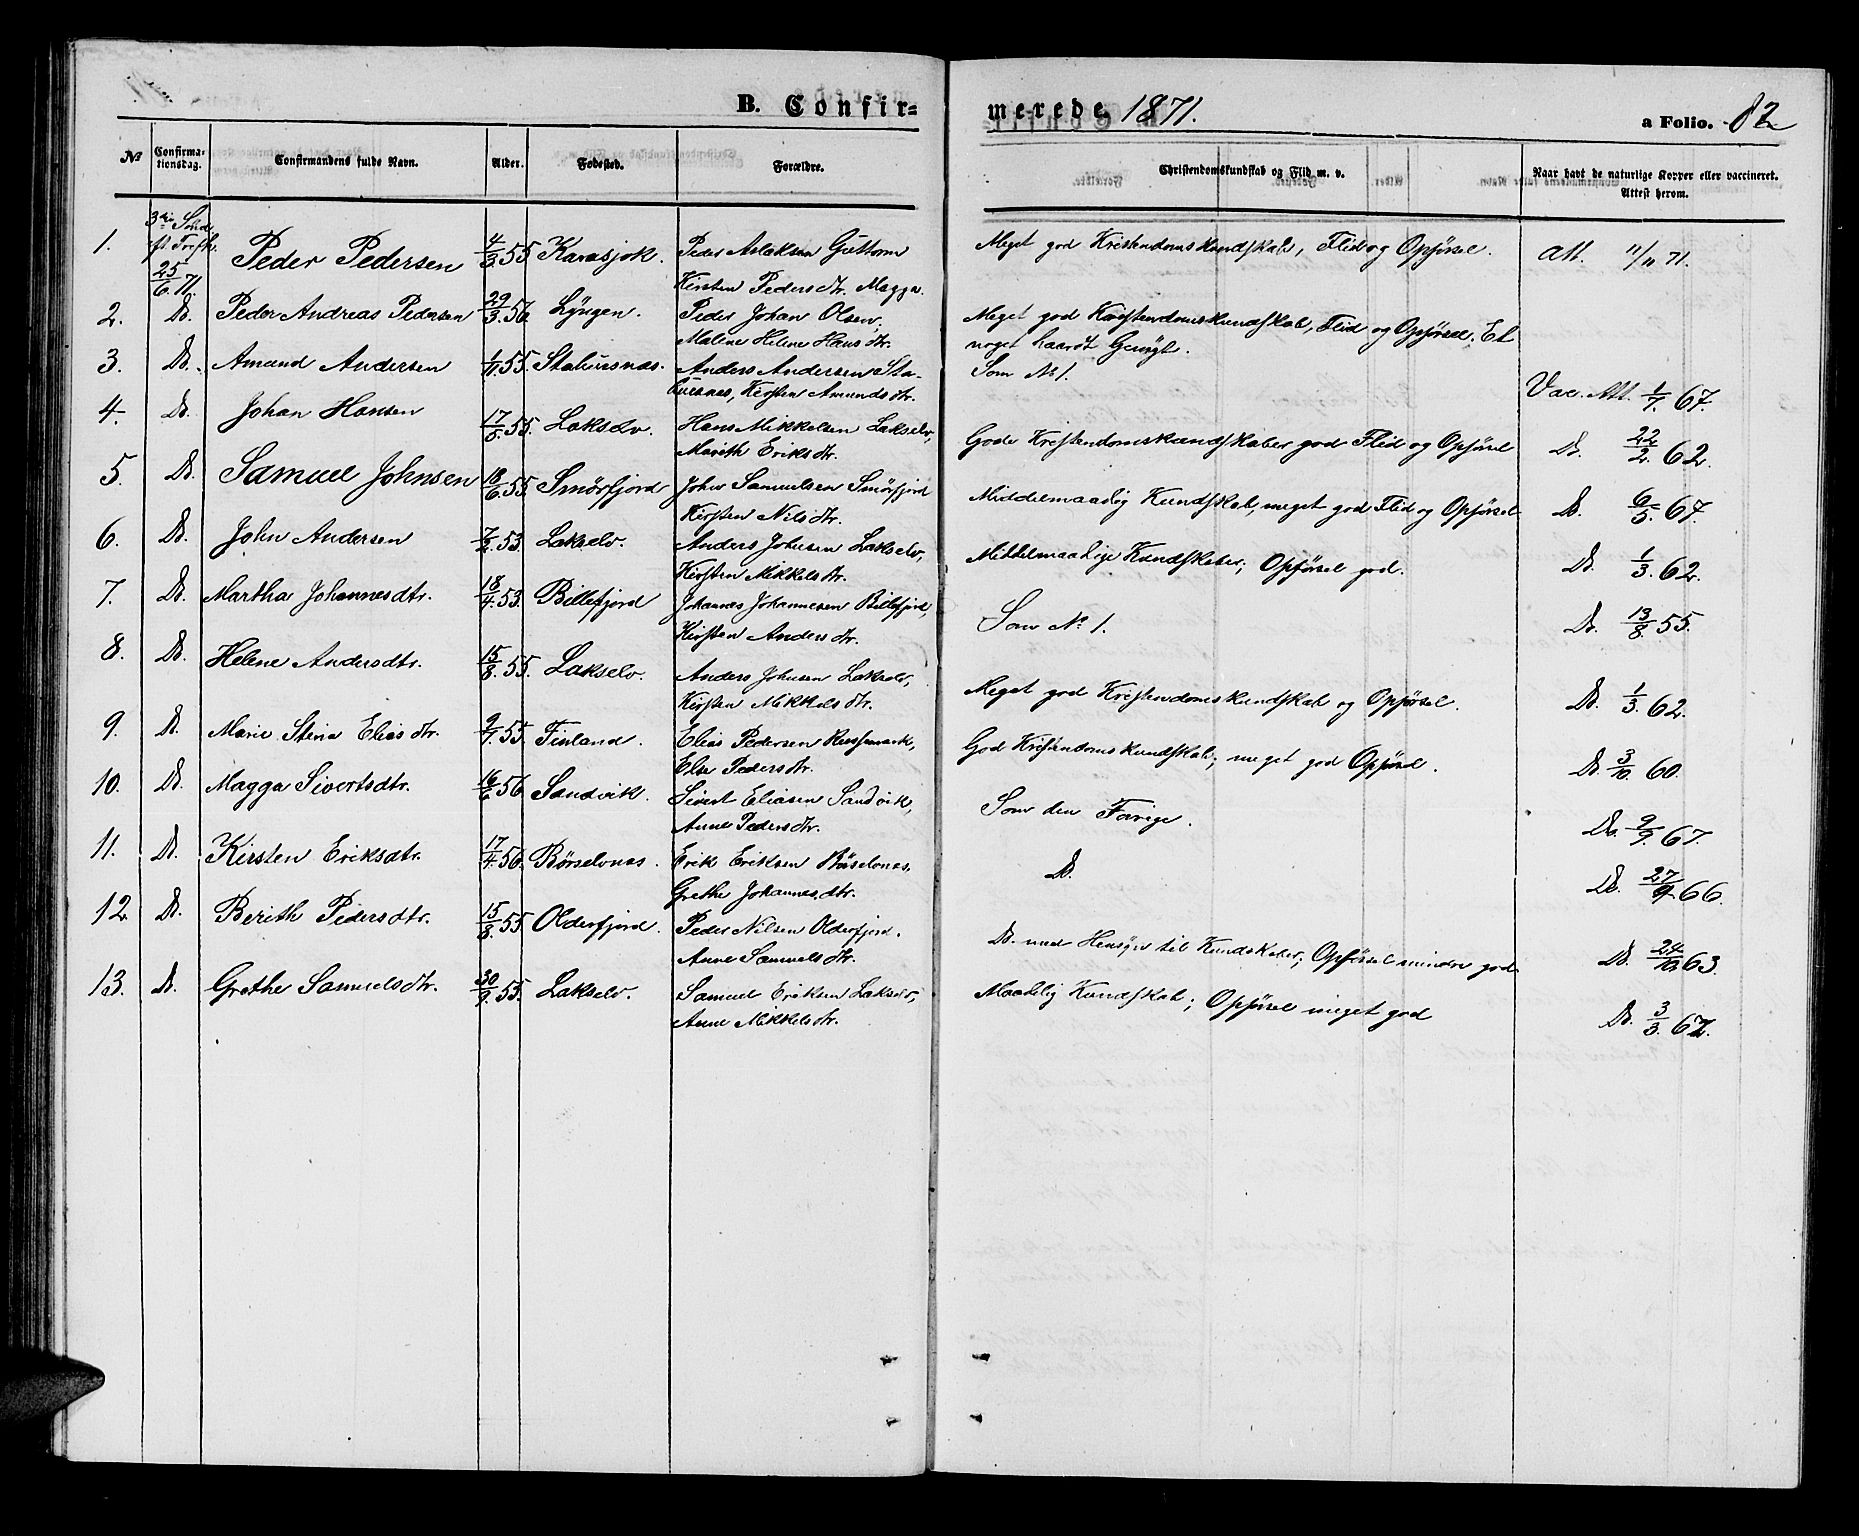 B. Confir=
merede 1871.
a Folio. 82
No
Confirma-
tionsdag.
Confirmandens fulde Navn.
Alder.
Fødested.
Forældre.
Christendomskundskab og Flid m. v.
Naar havt de naturlige Kopper eller vaccineret.
Attest herom.
1. 3die Sønd. 25/6 71. Peder Pedersen 4/3 55 Karasjok. Peder Aslaksen Guttorm
Kirsten Pedersdtr. Magga.
Meget god Kristendomskundskab, Flid og Opførsel. Att. 11/11 71.
2. Do. Peder Andreas Pedersen 29/3. 56. Lyngen. Peder Johan Olsen,
Malene Helene Hansdtr.
Meget god Kristendomskundskab, Flid og Opførsel. Et
noget haardt Gemyt.
3. Do. Amund Andersen 1/11. 55. Stabursnæs. Anders Andersen Sta-
bursnæs, Kirsten Amundsdtr.
Som No 1. Vac. Att. 1/7. 67.
4. Do. Johan Hansen 55. Lakselv. Hans Mikkelsen Lakselv,
Marith Eriksdtr.
Gode Kristendomskundskaber god Flid og Opførsel Do. 22/2. 62.
5. Do. Samuel Johnsen 18/6. 55. Smørfjord John Samuelsen Smørfjord
Kirsten Nilsdtr.
Middelmaadig Kundskab, meget god Flid og Opførsel Do. 6/5. 67.
6. Do. John Andersen 7/2. 53. Lakselv. Anders Johnsen Lakselv,
Kirsten Mikkelsdtr.
Middelmaadige Kundskaber; Opførsel god. Do. 1/3. 62.
7. Do. Martha Johannesdtr. 18/4. 53. Billefjord Johannes Johannesen Billefjord,
Kirsten Andersdtr.
Som No 1. Do. 13/8. 55.
8. Do. Helene Andersdtr. 15/8. 55. Lakselv. Anders Johnsen Lakselv,
Kirsten Mikkelsdtr.
Meget god Kristendomskundskab og Opførsel. Do. 1/3. 62.
9. Do. Marie Stina Eliasdtr. 9/7. 55. Finland. Elias Pedersen Russemark,
Else Pedersdtr.
God Kristendomskundskab; meget god Opførsel. Do. 3/10 60.
10. Do. Magga Sivertsdtr. 16/6 56 Sandvik. Sivert Eliasen Sandvik,
Anne Pedersdtr.
Som den Forrige. Do. 9/9. 67.
11. Do. Kirsten Eriksdtr. 17/4. 56. Børselvnæs. Erik Eriksen Børselvnæs.
Grethe Johannesdtr.
Do. Do. 27/9. 66.
12 Do. Berith Pedersdtr. 15/3. 55 Olderfjord. Peder Nilsen Olderfjord.
Anne Samuelsdtr.
Do. med Hensyn til Kundskaber; Opførsel mindre god. Do. 24/10. 63.
13. Do. Grethe Samuelsdtr. 30/9. 55. Lakselv. Samuel Eriksen Lakselv,
Anne Mikkelsdtr.
Maadelig Kundskab; Opførsel meget god Do. 3/3. 62.